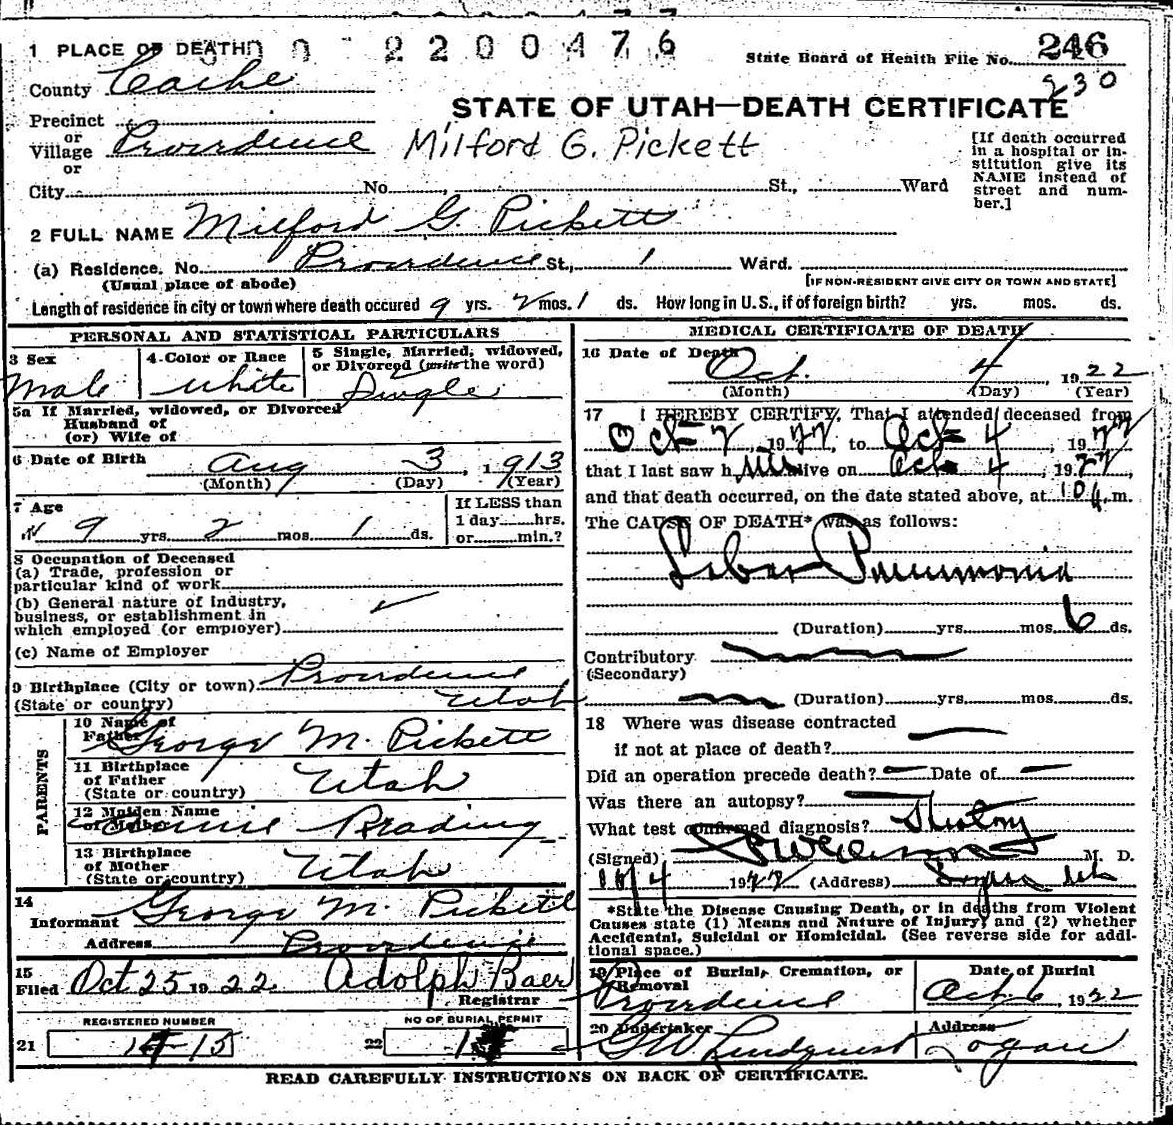 1 PLACE OF DEATH 2200476
State Board of Health File No. 246
230
County Cache
STATE OF UTAH—DEATH CERTIFICATE
Precinct
or
Village Providence
or
Milford G. Pickett
[If death occurred
in a hospital or in-
stitution give its
NAME instead of
street and num-
ber.]
City No. St., Ward
2 FULL NAME Milford G. Pickett
(a) Residence. No. Providence St., 1 Ward.
(Usual place of abode) [IF NON-RESIDENT GIVE CITY OR TOWN AND STATE]
Length of residence in city or town where death occured 9 yrs. 2 mos. 1 ds. How long in U.S., if of foreign birth? yrs. mos. ds.
PERSONAL AND STATISTICAL PARTICULARS
3 Sex
Male
4 Color or Race
White
5 Single, Married, widowed,
or Divorced (write the word)
Single
5a If Married, widowed, or Divorced
Husband of
(or) Wife of
6 Date of Birth Aug 3, 1913
(Month) (Day) (Year)
7 Age
9 yrs. 2 mos. 1 ds.
If LESS than
1 day hrs.
or min.?
8 Occupation of Deceased
(a) Trade, profession or
particular kind of work
(b) General nature of Industry,
business, or establishment in
which employed (or employer)
(c) Name of Employer
9 Birthplace (City or town) Providence
(State or country) Utah
PARENTS
10 Name of
Father George M. Pickett
11 Birthplace
of Father
(State or country) Utah
12 Maiden Name
of Mother
13 Birthplace
of Mother
(State or country) Utah
14
Informant George M. Pickett
Address Providence
15
Filed Oct 25 1922 Adolph Baer
Registrar
REGISTERED NUMBER
21 15
NO OF BURIAL PERMIT
22
MEDICAL CERTIFICATE OF DEATH
16 Date of Death
Oct. 4, 1922
(Month) (Day) (Year)
17 I HEREBY CERTIFY, That I attended deceased from
Oct 2 1922 to Oct 4, 1922
that I last saw him alive on Oct 4, 1922
and that death occurred, on the date stated above, at m.
The CAUSE OF DEATH* was as follows:
Lobar Pneumonia
(Duration) yrs. mos. 6 ds.
Contributory
(Secondary)
(Duration) yrs. mos. ds.
18 Where was disease contracted
if not at place of death?
Did an operation precede death? Date of
Was there an autopsy?
What test confirmed diagnosis?
(Signed) M. D.
10/4 1922 (Address) Logan Utah
*State the Disease Causing Death, or in deaths from Violent
Causes state (1) Means and Nature of Injury; and (2) whether
Accidental, Suicidal or Homicidal. (See reverse side for addi-
tional space.)
19 Place of Burial, Cremation, or
Removal
Providence
Date of Burial
Oct 6, 1922
20 Undertaker
G W Lindquist
Address
Logan
READ CAREFULLY INSTRUCTIONS ON BACK OF CERTIFICATE.